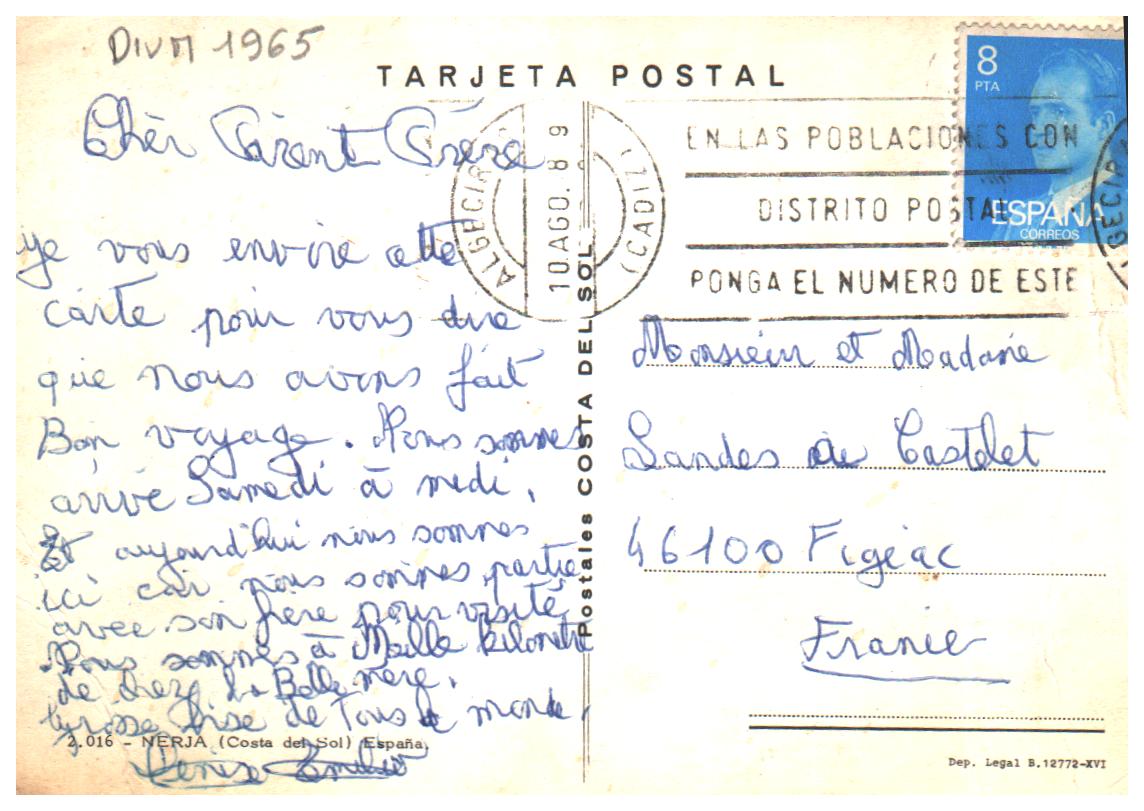 DIVM 1965
TARJETA POSTAL
8
PTA
ESPAÑA
CORREOS
ALGECIRAS
10 AGO. 8 9
(CADIZ)
EN LAS POBLACIONES CON
DISTRITO POSTAL
PONGA EL NUMERO DE ESTE
Chèr Parent Frère
je vous envoie cette
carte pour vous dire
que nous avons fait
Bon voyage. Nous sommes
arrivé Samedi à midi,
Et aujourd'hui nous sommes
ici car nous sommes partie
avec son frère pour visité
.Nous sommes à Maille kilomètre
de chez la Belle mère,
Grosse bise de Tous le monde,
Denise
2.016 - NERJA (Costa del Sol) España
Postales COSTA DEL SOL
Monsieur et Madame
Landes de Castelet
46100 Figeac
France
Dep. Legal B.12772-XVI